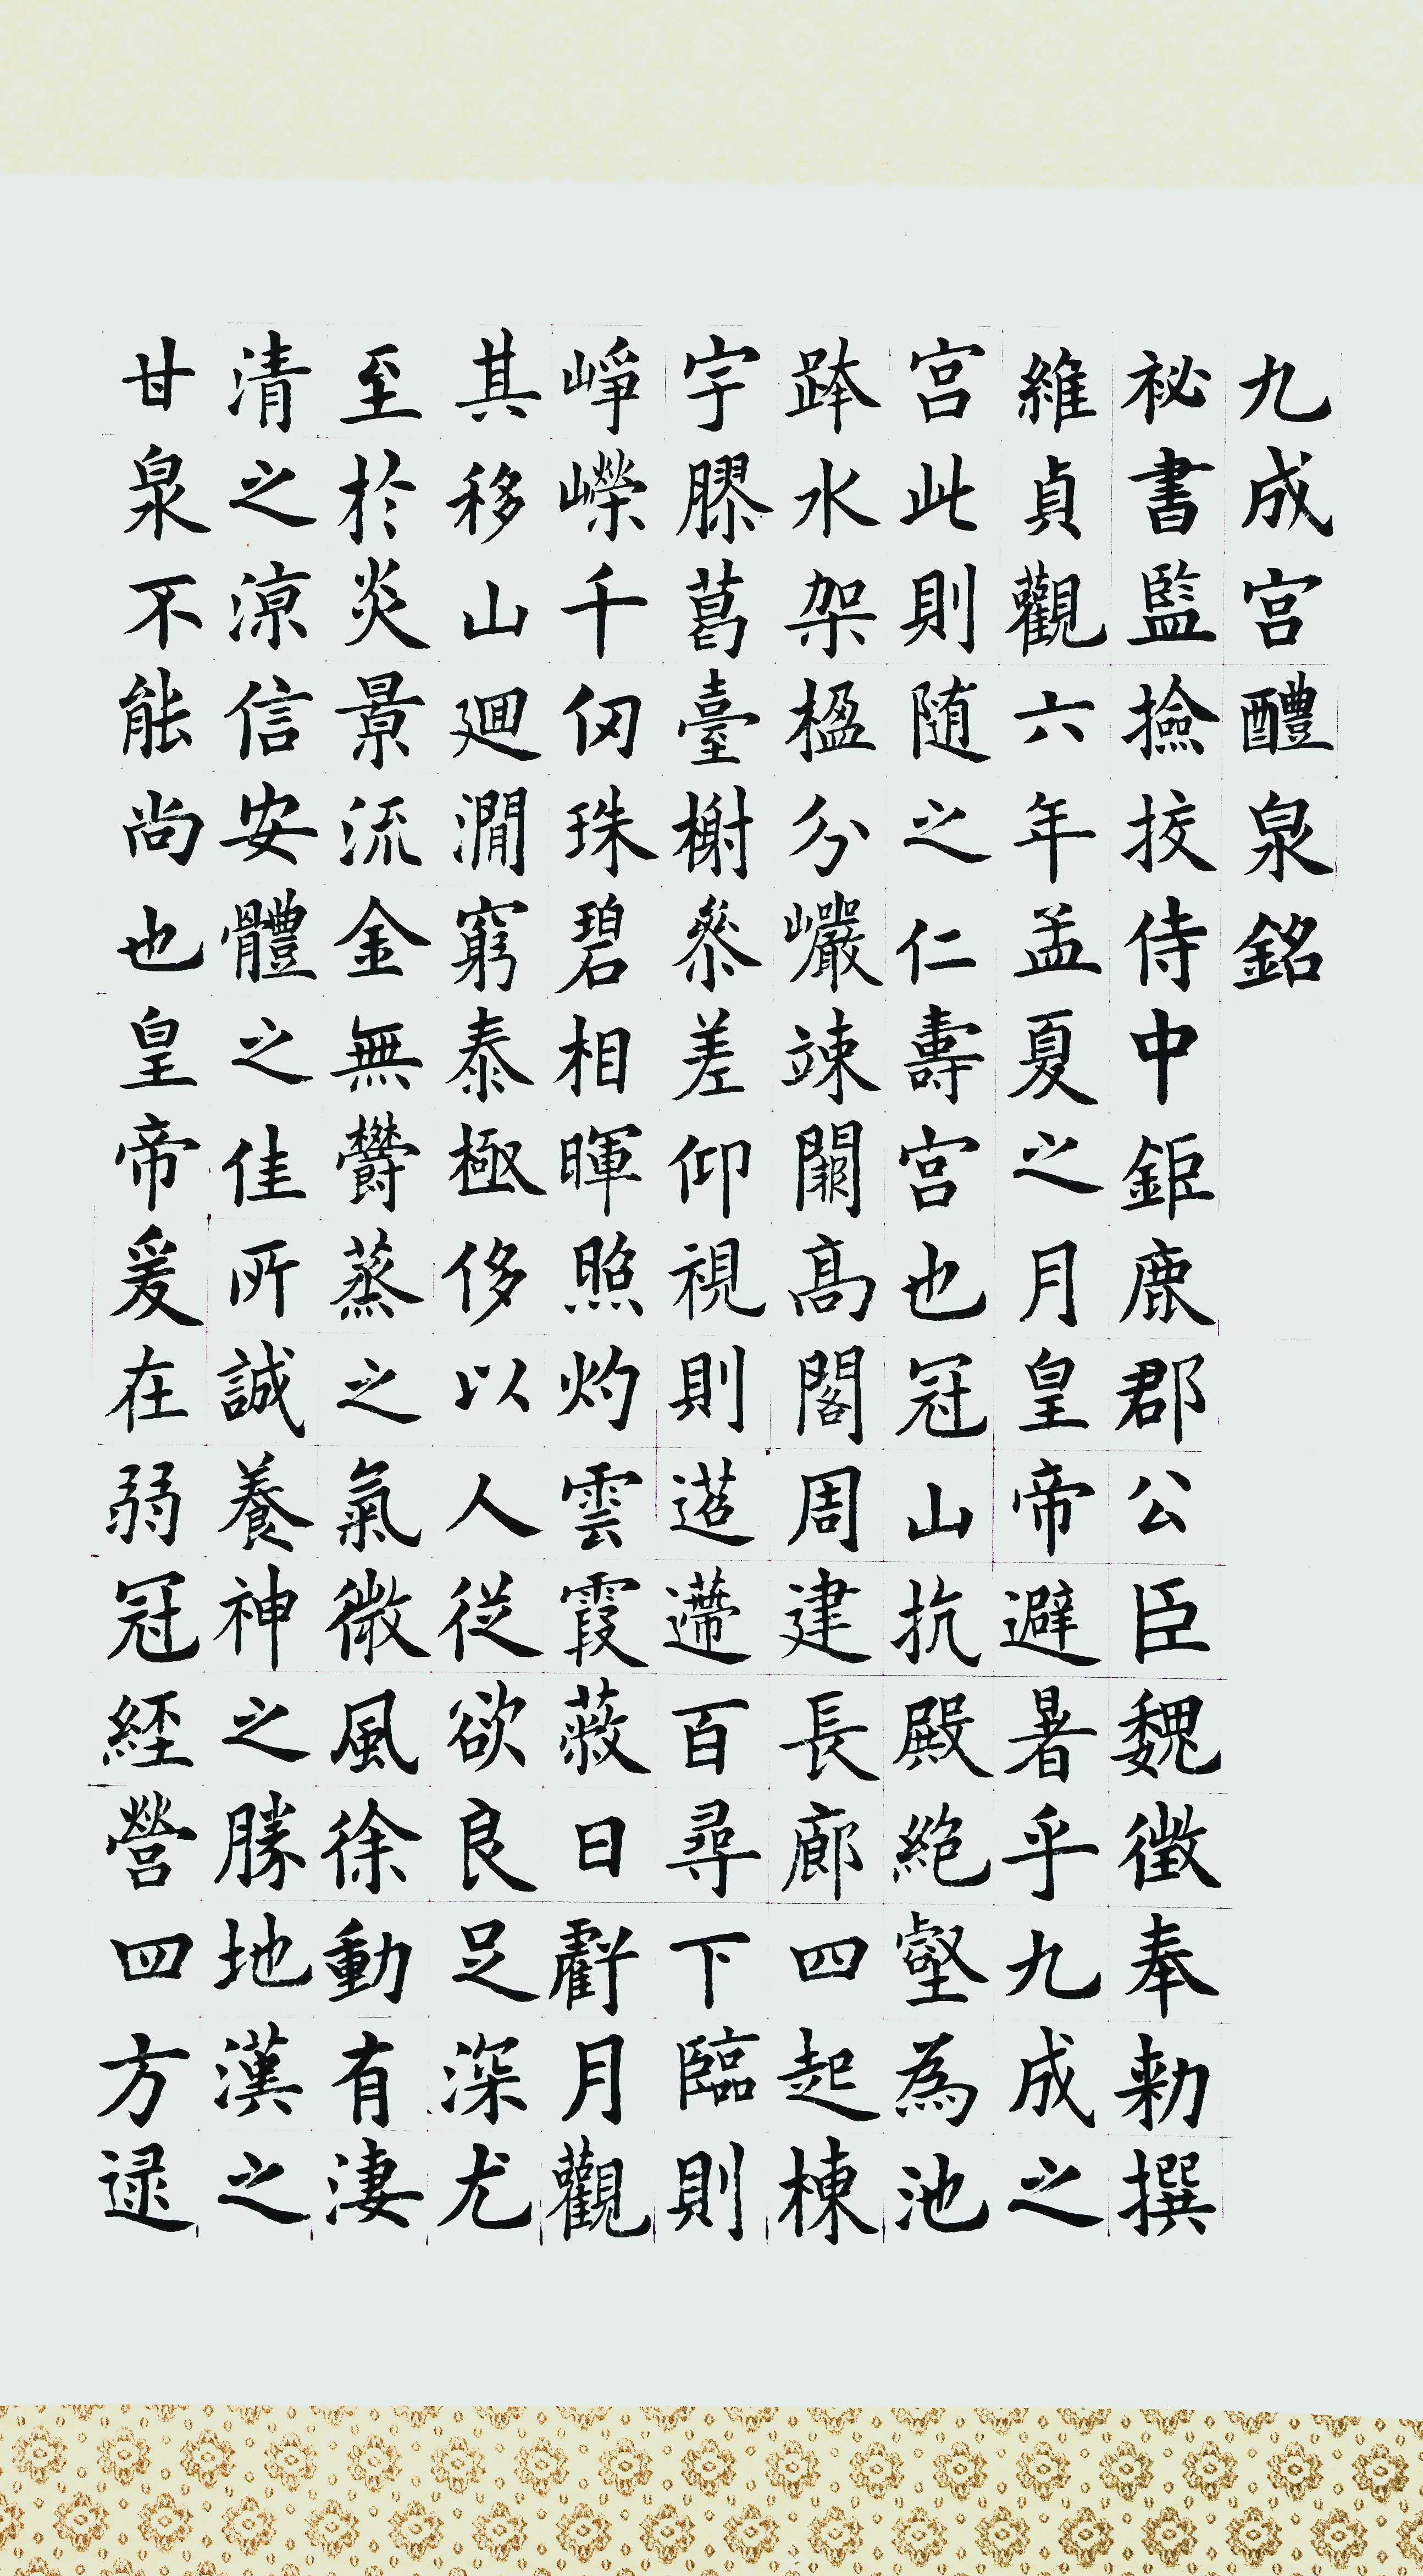 九成宮醴泉銘
祕書監撿挍侍中鉅鹿郡公臣魏徵奉勑撰
維貞觀六年孟夏之月皇帝避暑乎九成之
宮此則随之仁壽宮也冠山抗殿絕壑為池
跨水架楹分巖竦闕高閣周建長廊四起棟
宇膠葛臺榭參差仰視則迢遰百尋下臨則
崢嶸千仞珠碧相暉照灼雲霞蔽日虧月觀
其移山迴澗窮泰極侈以人從欲良足深尤
至於炎景流金無欝蒸之氣微風徐動有淒
清之涼信安體之佳所誠養神之勝地漢之
甘泉不能尚也皇帝爰在弱冠經營四方逮